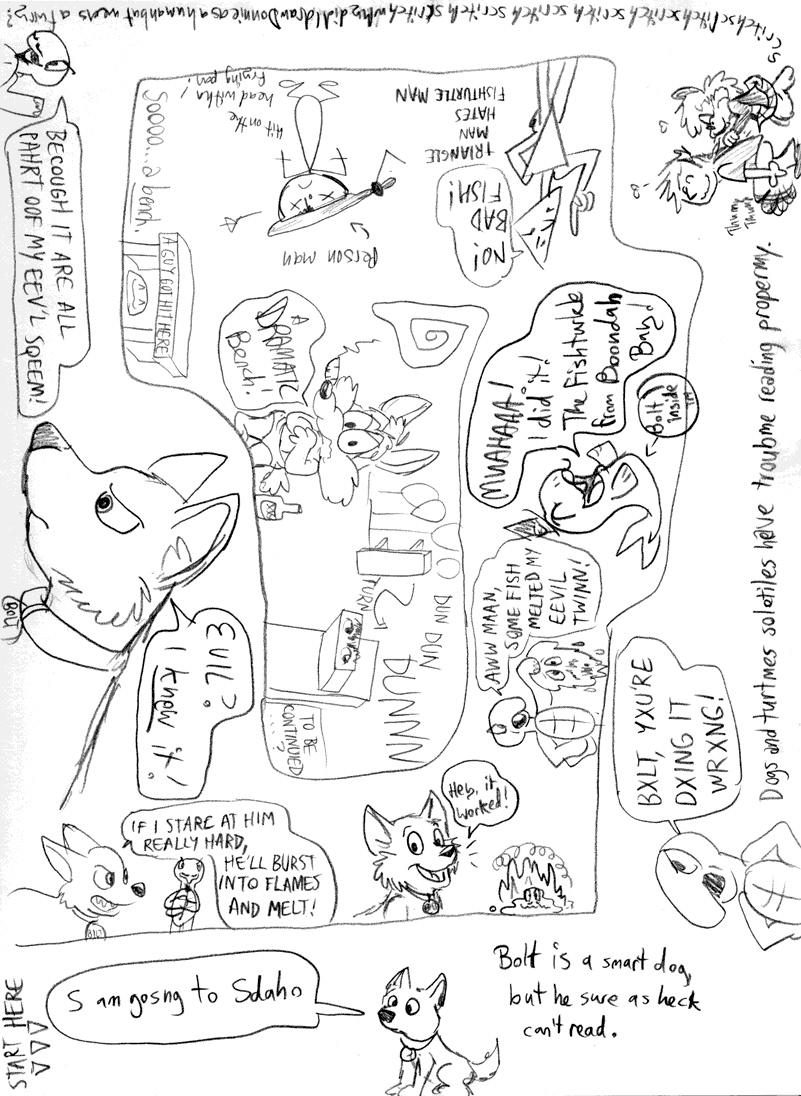 START HERE
S am gosng to Sdaho
Bolt is a smart dog,
but he sure as heck
can't read.
BXLT, YXU'RE
DXING IT
WRXNG!
Dogs and turtmes solatiles have troubme reading propermy.
Thump
Thump
scritch scritch scritch scritch scritch scritch why did I draw Donnie as a human but wers a turny?
BECOUGH IT ARE ALL
PAHRT OOF MY EEV'L SQEEM!
EVIL?
I knew it!
BOLT
IF I STARE AT HIM
REALLY HARD,
HE'LL BURST
INTO FLAMES
AND MELT!
Heh, it
worked!
AWW MAAN,
SOME FISH
MELTED MY
EEVIL
TWINN!
MWAHAAA!
I did it!
The Fishturkle
from Boondah
Bay!
Bolt
inside
TM
NO!
BAD
FISH!
TRIANGLE
MAN
HATES
FISHTURTLE MAN
Person man
Hit on the
head with a
frying pan!
Soooo... a bench.
A GUY GOT HIT HERE
A
DRAMATIC
Bench!
TURN
DUN DUN
DUNNN
TO BE
CONTINUED
...?